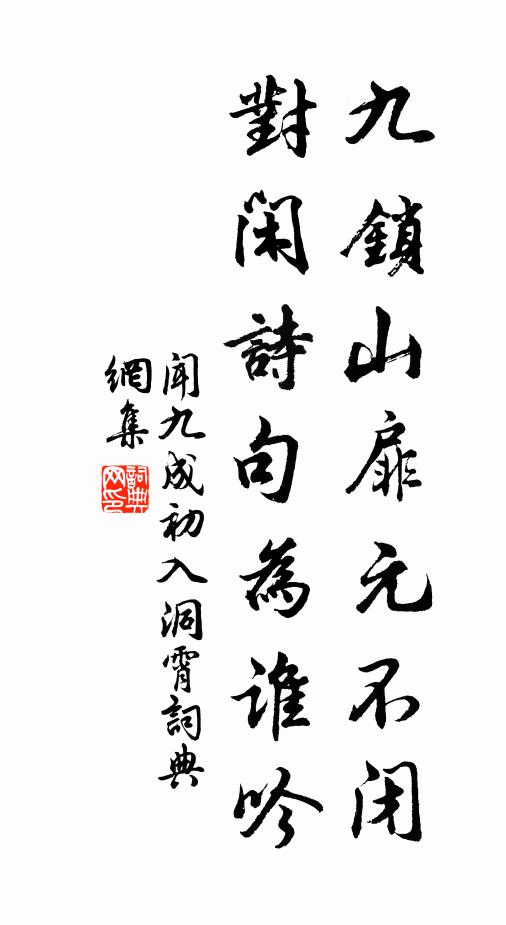 九鎖山扉元不闭
對閑詩句為誰吟
聞九成初入洞霄詞典
網集
詞典
网印